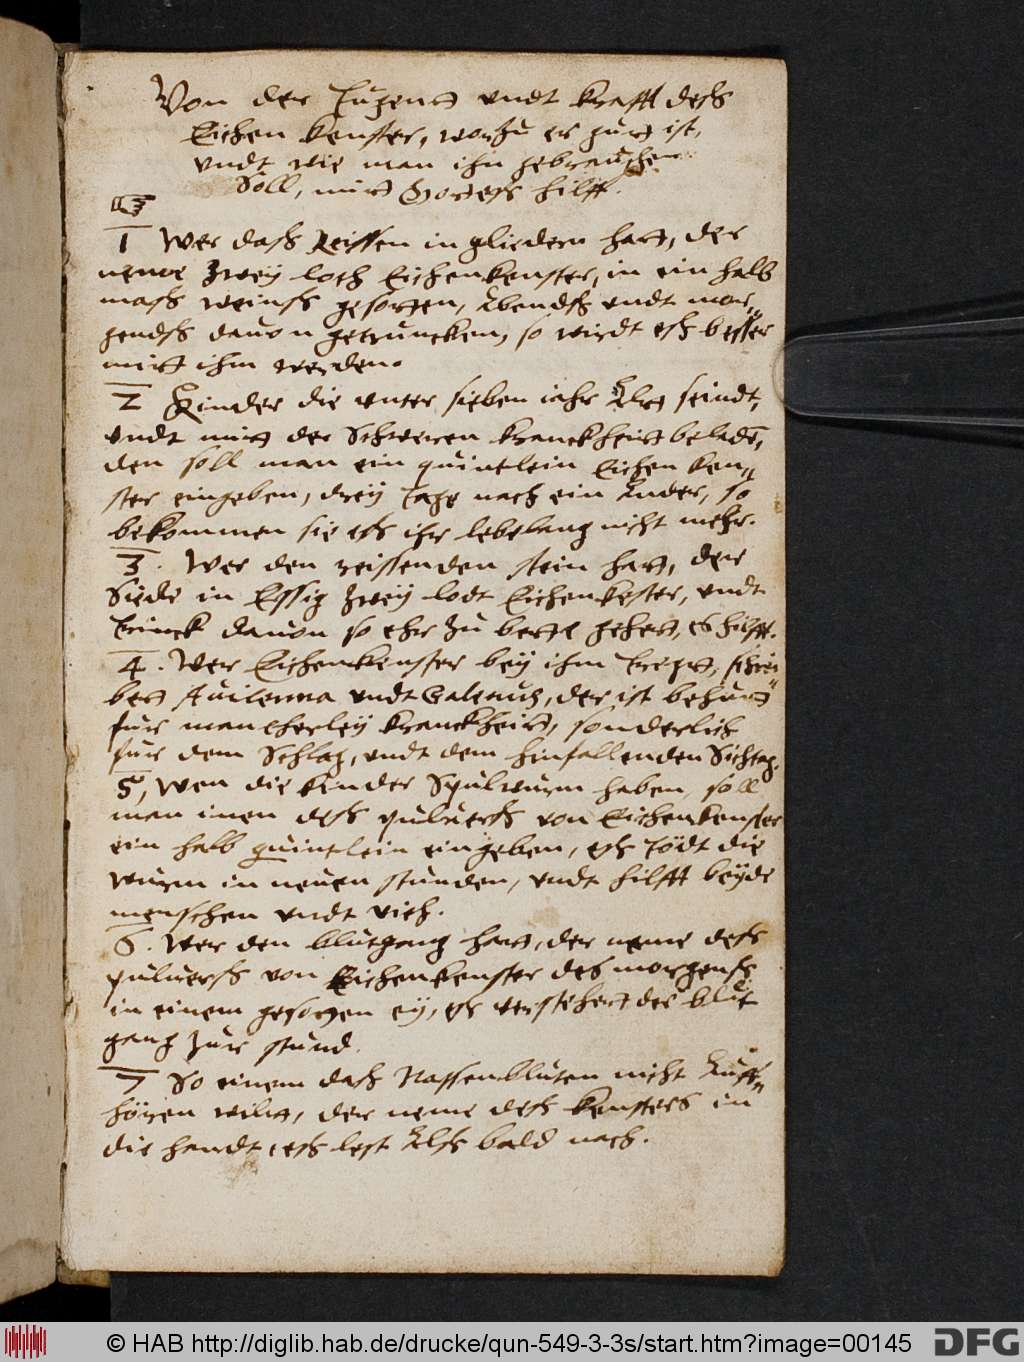 Von der Tugent vndt krafft dess
Eichen kenster, worzu er gutt ist,
vndt wie man ihn gebrauchen
Soll, mitt Gottess hilff.
1 Wer dass Reissen in gliedern hatt, der
neme zwey loth Eichenkenster, in ein halb
mass weinss gesotten, Abendss vndt mor„
gendss dauon getruncken, so wirdt ess besser
mitt ihm werden.
2 Kinder die vnter sieben iahr Altt seindt,
vndt mitt der Schweren kranckheitt beladē,
den soll man ein quintlein Eichen ken„
ster eingeben, drey Tage nach ein Ander, so
bekommen sie ess ihr lebelang nicht mehr.
3. Wer den reissenden stein hatt, der
Siede in Essig zwey lodt Eichenkester, vndt
Trinck dauon so ehr zu bette gehett, es hilfft.
4. Wer Eichenkenster bey ihm Tregtt, schrei„
bett Auicenna vndt Galenus, der ist behutt
fur mancherley kranckheitt, sonderlich
fur dem Schlag, vndt dem hinfallenden Sichtag.
5, Wen die kinder Spulwurm haben, soll
man inen dess puluerss von Eichenkenster
ein halb quintlein eingeben, ess Tödt die
wurm in neuen stunden, vndt hilfft beyde
menschen vndt vieh.
6. Wer den blutgang hatt, der neme dess
puluerss von Eichenkenster des morgenss
in einem gesotten ey, es verstehett der blut
gang zur stund.
7 So einem dass Nassenbluten nicht Auff„
hören wiltt, der neme dess kensters in
die handt, ess lest Alss bald nach.
© HAB http://diglib.hab.de/drucke/qun-549-3-3s/start.htm?image=00145
DFG